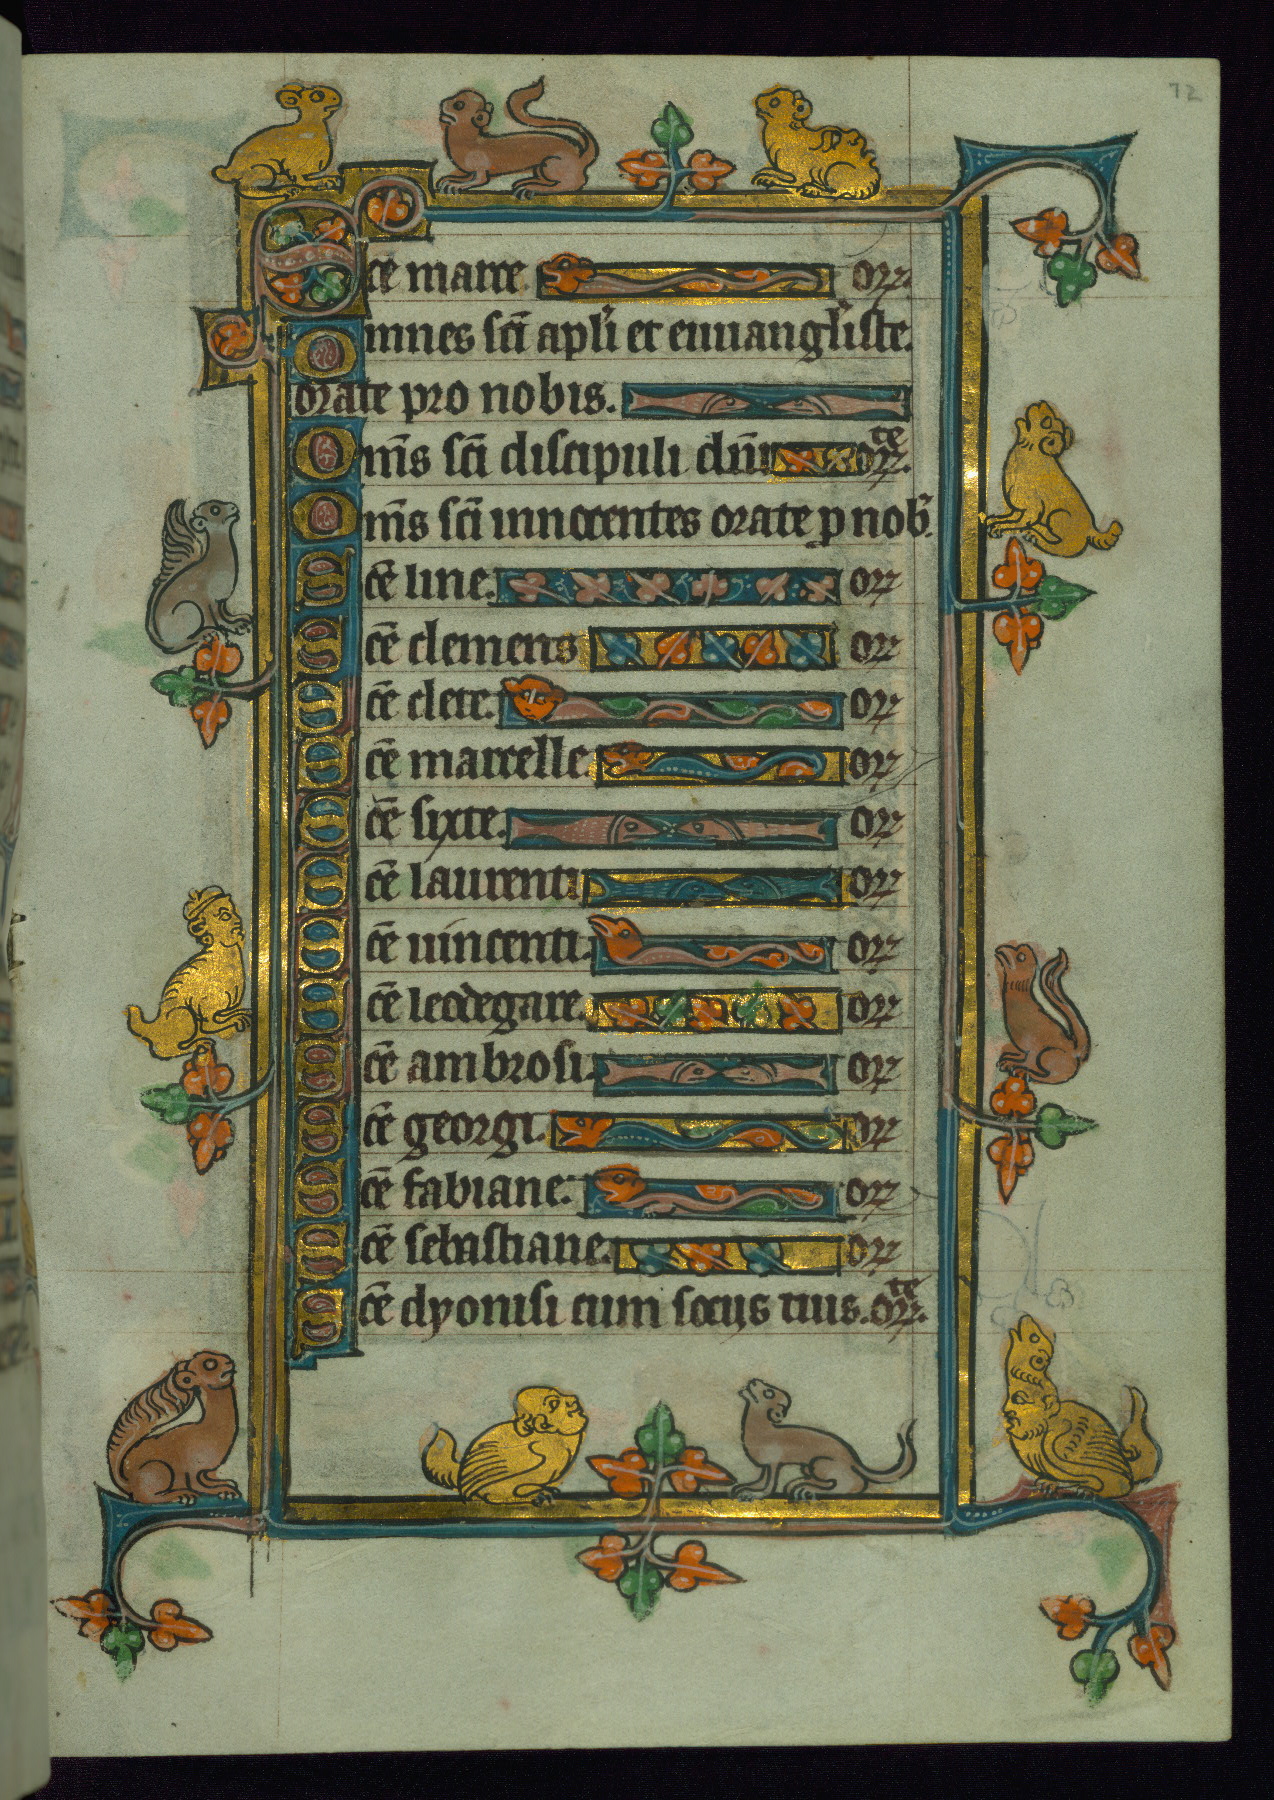 72
Sc̄e marce or͛
Omnes sc̄i apl̄i et euuangl̄iste.
orate pro nobis.
Om̄s sc̄i discipuli dn̄i orate.
Om̄s sc̄i innocentes orate p nob̄.
Sc̄e line. or͛
Sc̄e clemens or͛
Sc̄e clete. or͛
Sc̄e marcelle. or͛
Sc̄e sixte. or͛
Sc̄e laurenti or͛
Sc̄e uincenti. or͛
Sc̄e leodegare. or͛
Sc̄e ambrosi. or͛
Sc̄e georgi. or͛
Sc̄e fabiane. or͛
Sc̄e sebastiane. or͛
Sc̄e dyonisi cum sociis tuis. orate.